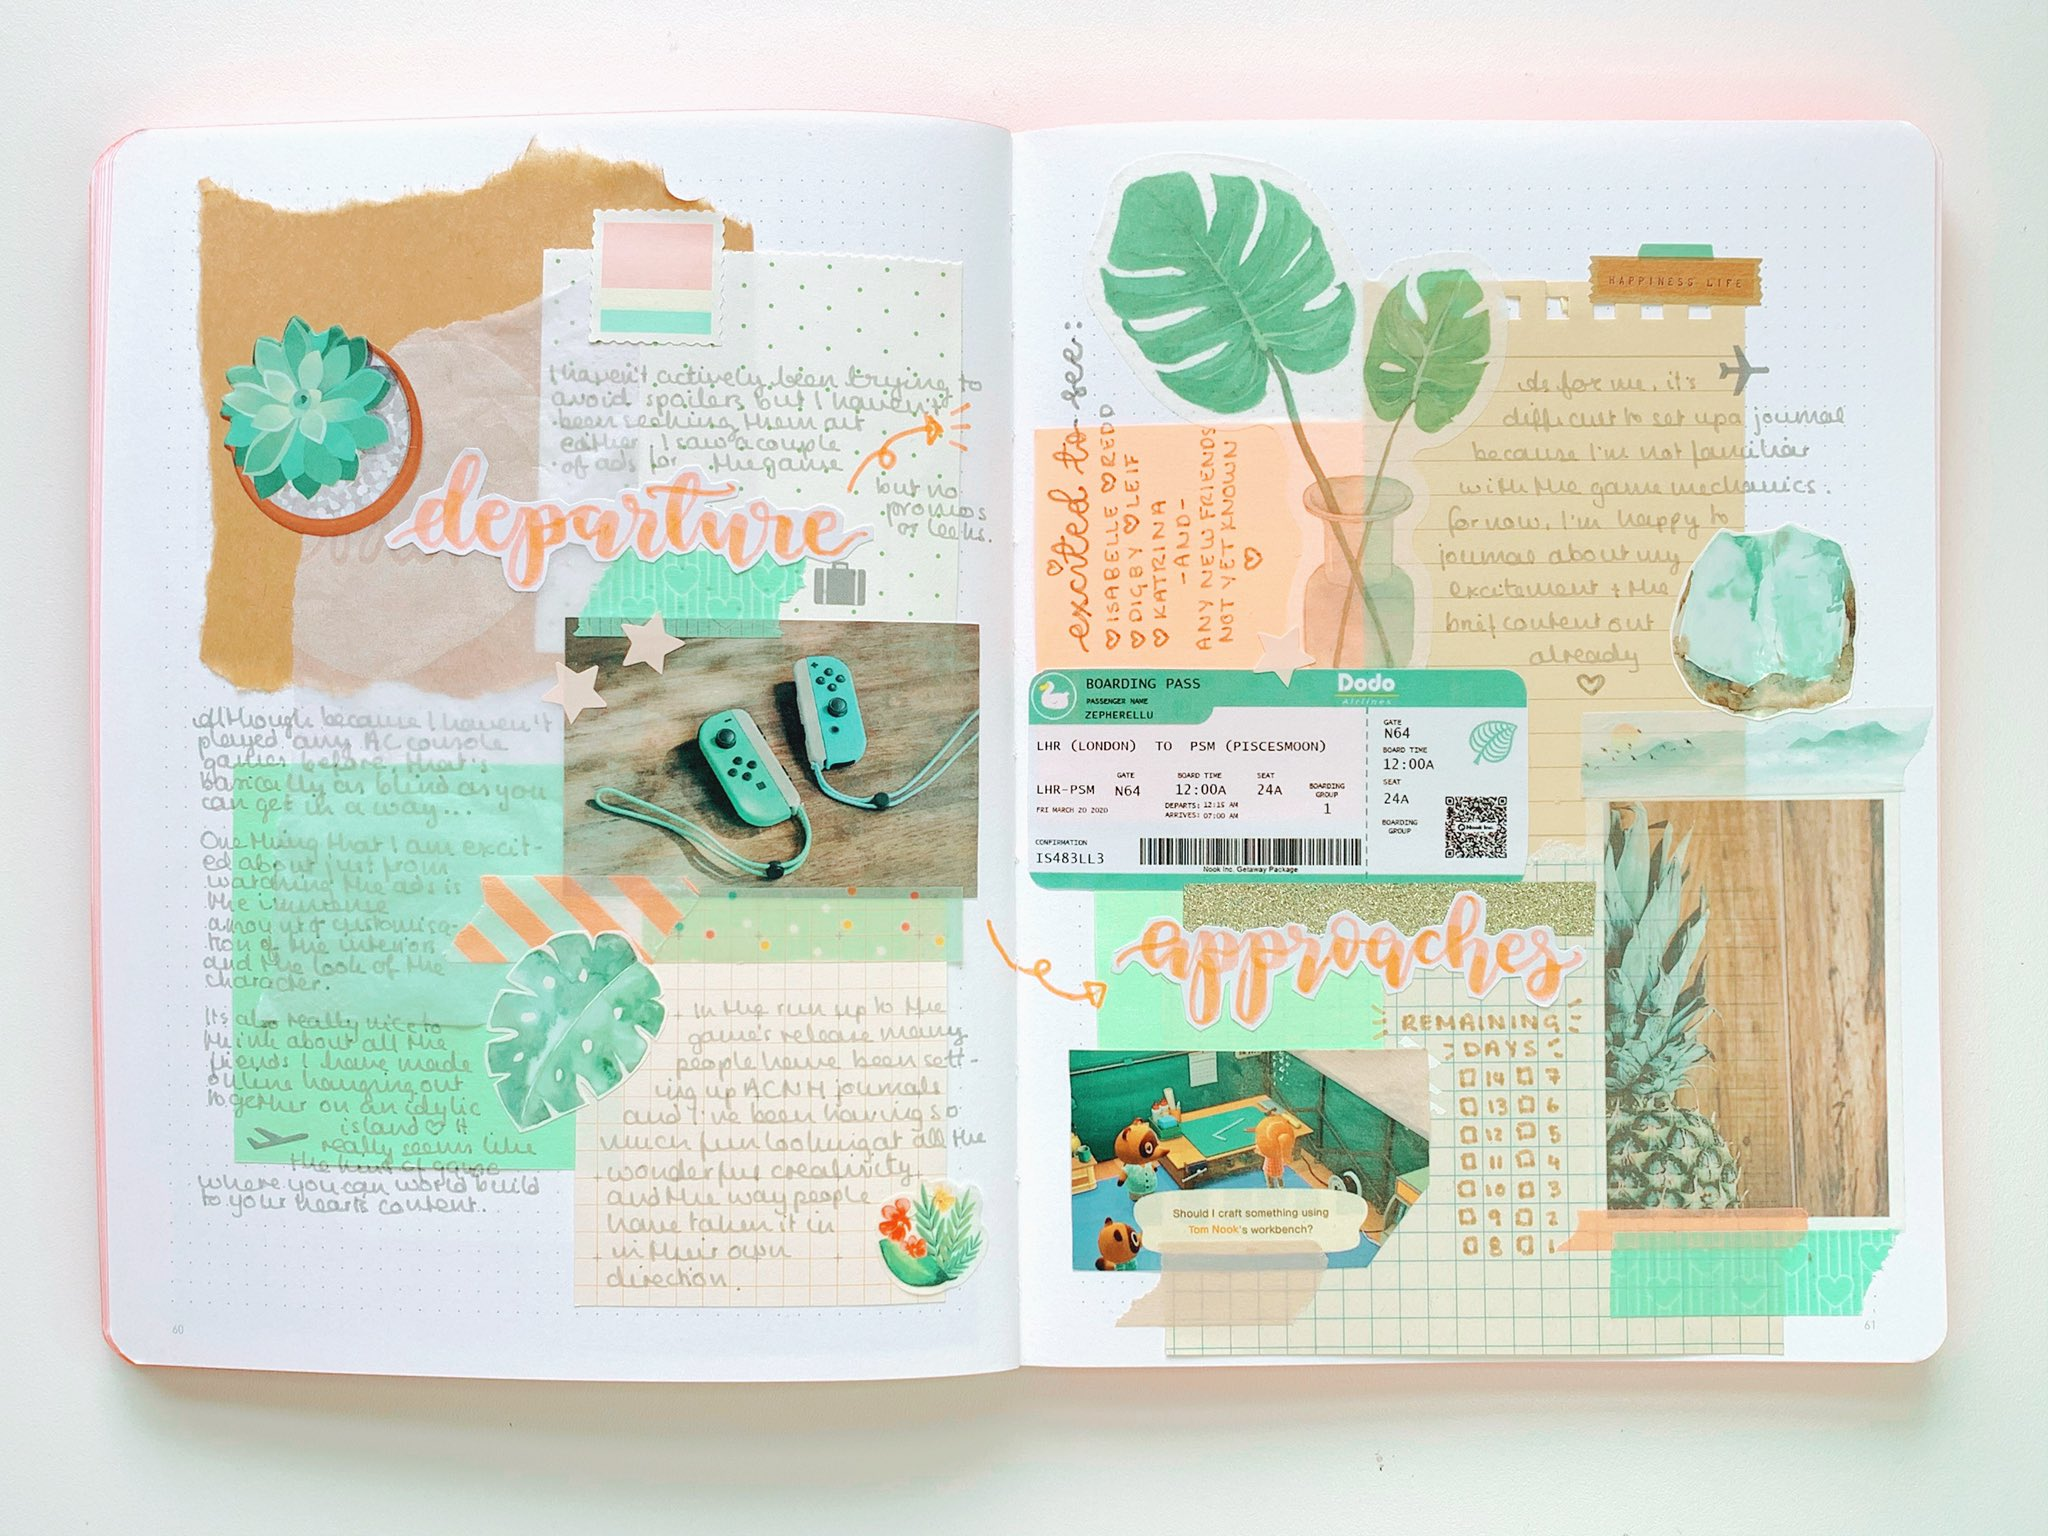 I haven't actively been trying to
avoid spoilers but I haven't
been seeking them out
either. I saw a couple
of ads for the game
but no
promos
or leaks.
departure
Although because I haven't
played any AC console
games before that's
basically as blind as you
can get in a way...
One thing that I am excit-
ed about just from
watching the ads is
the immense
amount of customisa-
tion of the interiors
and the look of the
character.
It's also really nice to
think about all the
friends I have made
online hanging out
together on an idylic
island ♡ It
really seems like
the kind of game
where you can world build
to your heart's content.
In the run up to the
game's release many
people have been sett-
ing up ACNH journals
and I've been having so
much fun looking at all the
wonderful creativity
and the way people
have taken it in
in their own
direction.
60
excited to see:
♡ISABELLE ♡ORED
♡DIGBY ♡LEIF
♡KATRINA
-AND-
ANY NEW FRIENDS
NOT YET KNOWN
♡
HAPPINESS LIFE
As for me, it's
difficult to set up a journal
because I'm not familiar
with the game mechanics.
for now, I'm happy to
journal about my
excitement + the
brief content out
already
♡
BOARDING PASS
PASSENGER NAME
ZEPHERELLU
Dodo
Airlines
LHR (LONDON) TO PSM (PISCESMOON)
GATE BOARD TIME SEAT BOARDING GROUP
LHR-PSM N64 12:00A 24A 1
FRI MARCH 20 2020
DEPARTS: 12:15 AM
ARRIVES: 07:00 AM
CONFIRMATION
IS483LL3
Nook Inc. Getaway Package
GATE
N64
BOARD TIME
12:00A
SEAT
24A
BOARDING
GROUP
Nook Inc.
approaches
REMAINING
DAYS
14 7
13 6
12 5
11 4
10 3
9 2
8 1
Should I craft something using
Tom Nook's workbench?
61